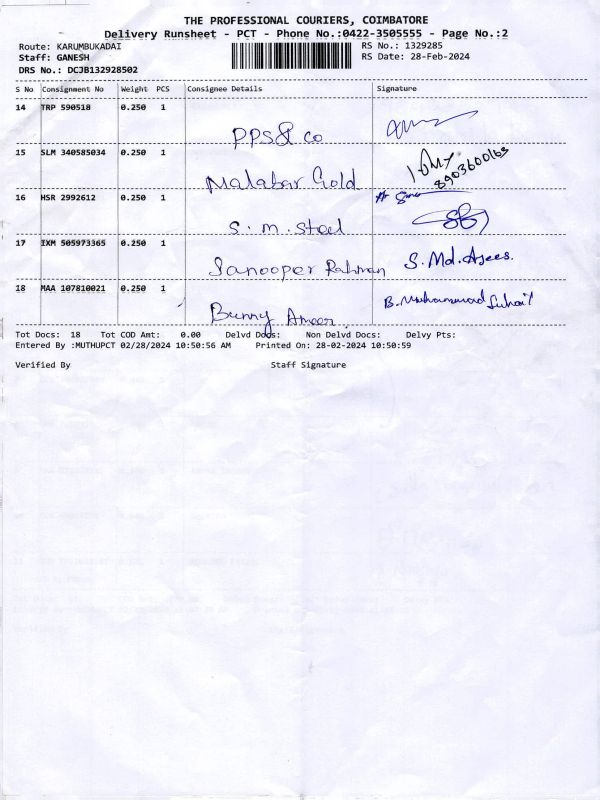 THE PROFESSIONAL COURIERS, COIMBATORE
Delivery Runsheet - PCT - Phone No.:0422-3505555 - Page No.:2
Route: KARUMBUKADAI RS No.: 1329285
Staff: GANESH RS Date: 28-Feb-2024
DRS No.: DCJB132928502
S No Consignment No Weight PCS Consignee Details Signature
14 TRP 590518 0.250 1
PPS& co
15 SLM 340585034 0.250 1
8903600163
Malabar Gold
16 HSR 2992612 0.250 1
S. m. Steel
17 IXM 505973365 0.250 1
Sanooper Rahman S. Md. Azees.
18 MAA 107810021 0.250 1
B. Muhammad Suhail
Bunny Ameer
Tot Docs: 18 Tot COD Amt: 0.00 Delvd Docs: Non Delvd Docs: Delvy Pts:
Entered By :MUTHUPCT 02/28/2024 10:50:56 AM Printed On: 28-02-2024 10:50:59
Verified By Staff Signature